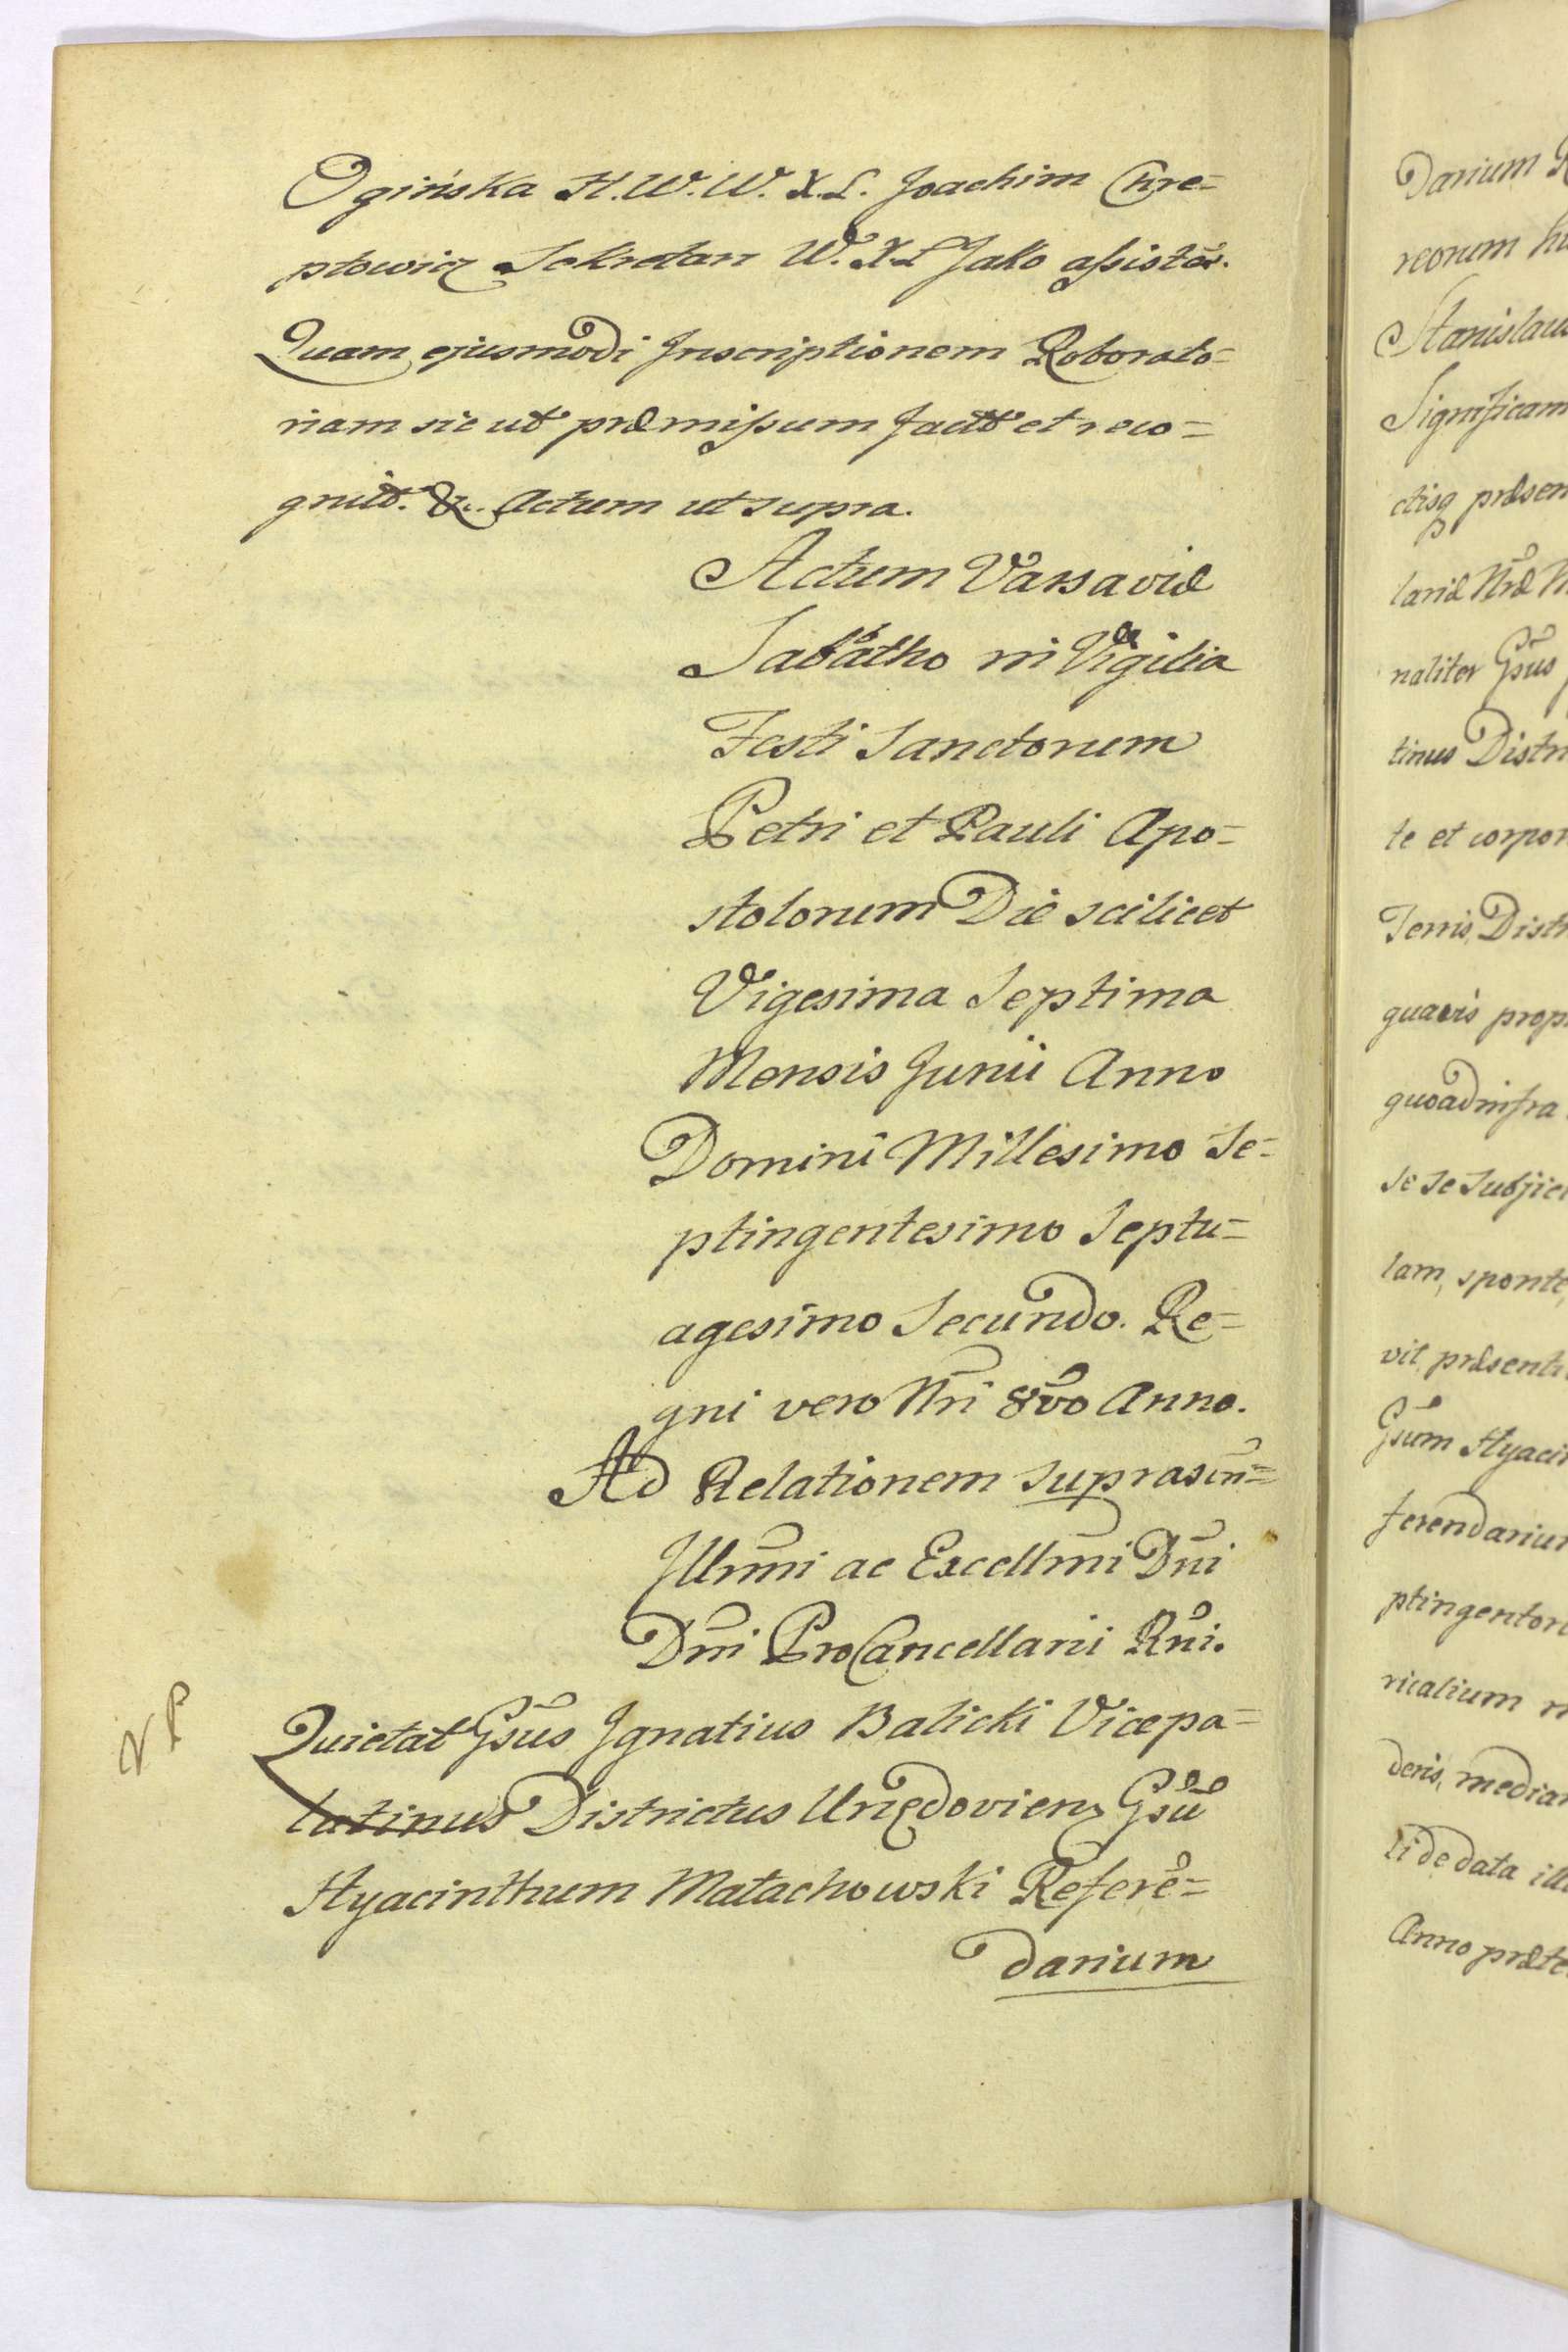 Ogińska H. W. W. X. L. Joachim Chre=
ptowicz Sekretarz W. X. L Jako assistēs.
Quam ejusmodi Inscriptionem Roborato=
riam sic ut præmissum factt et reco=
gnitt. &c. Actum ut supra.
Actum Varsaviæ
Sabbatho in Vigilia
Festi Sanctorum
Petri et Pauli Apo=
stolorum Die scilicet
Vigesima Septima
Mensis Junii Anno
Domini Millesimo Se=
ptingentesimo Septu=
agesimo Secundo. Re=
gni vero Nri 8vo Anno.
Ad Relationem suprascn=
Illrmi ac Excellmi Dni
Dni ProCancellarii Rni.
NP
Quietat Gsus Ignatius Balicki Vicepa=
latinus Districtus Urzędoviens Gsū
Hyacinthum Małachowski Referē=
darium
Darium
reorum
Stanislau
Significam
ctisq præsen
lariæ Nræ
naliter Gsus
tinus Distr
te et corpor
Terris, Distr
quavis prop
quoad infra
se se subjici
lam, sponte
vit præsenti
Gsum Hyacin
ferendarium
ptingentor
ricalium
deris, median
li de data
Anno præte